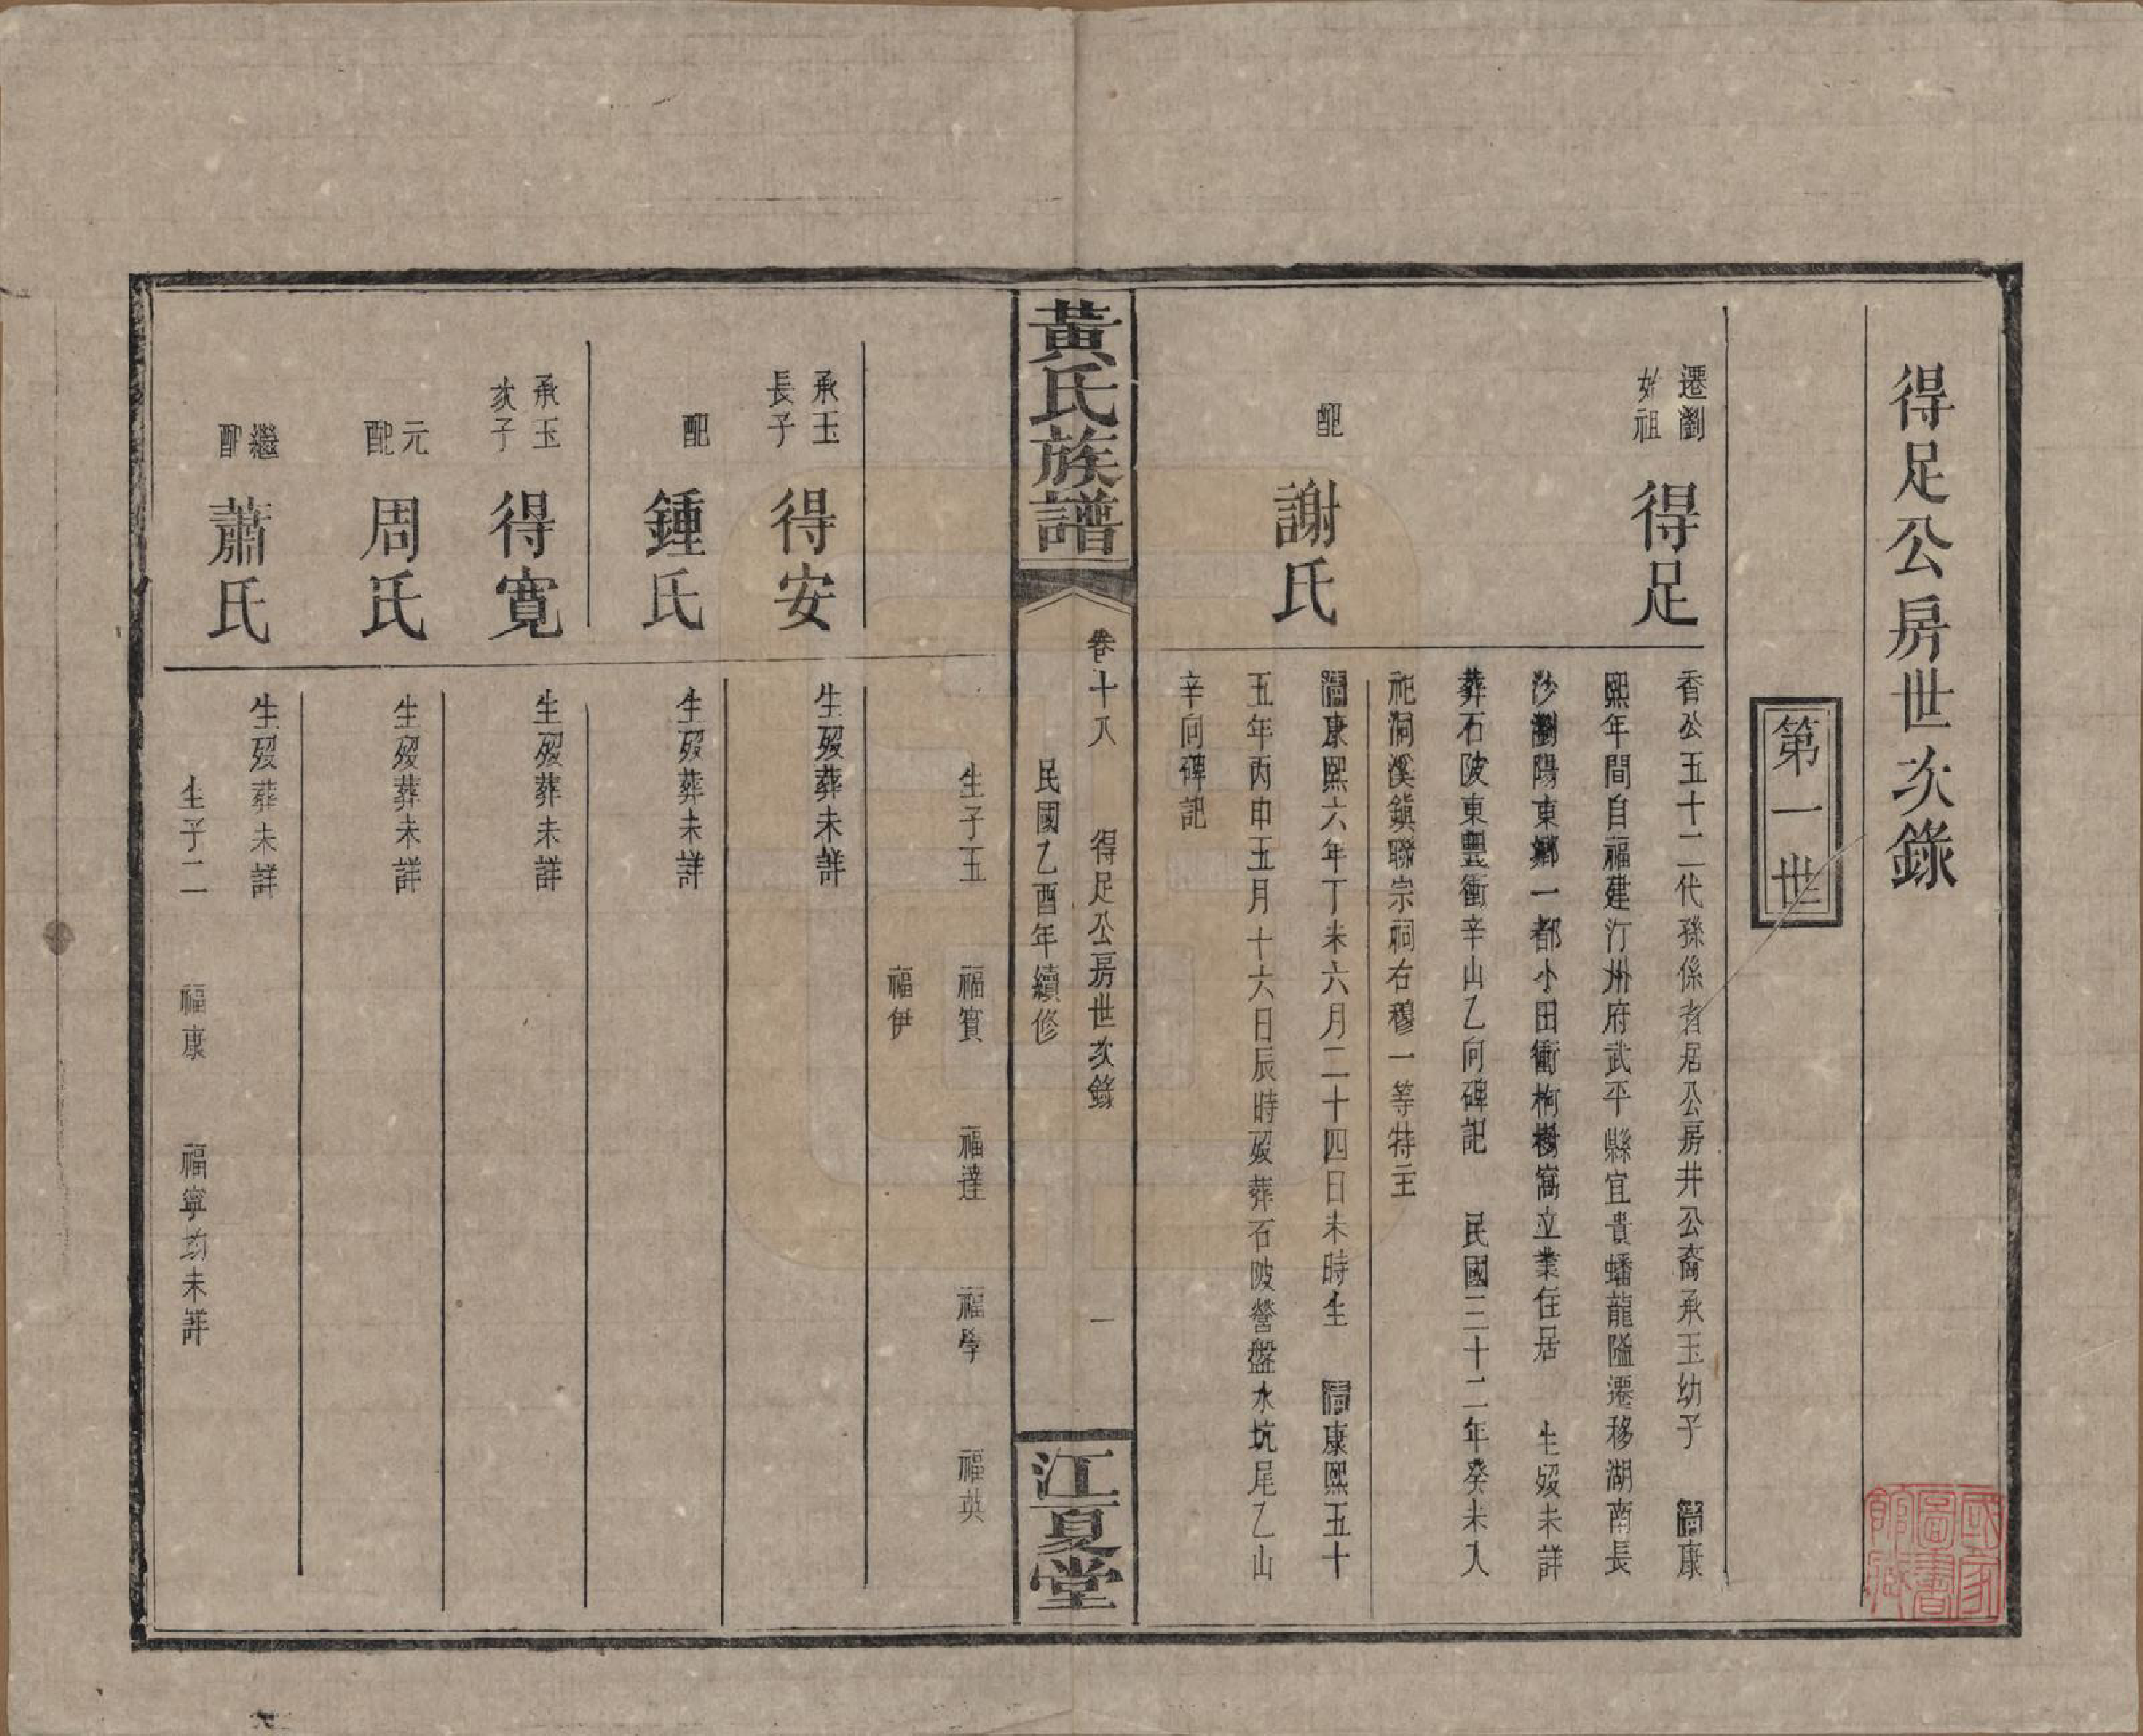 得足公房世次錄
第一世
遷瀏
始祖
得足
香公五十二代孫係眘居公房井公裔承玉幼子 淸康
熙年間自福建汀州府武平縣宜貴蟠龍隘遷移湖南長
沙瀏陽東鄉一都小田衝柯樹窩立業住居 生歿未詳
葬石陂東豐衝辛山乙向碑記 民國三十二年癸未入
祀洞溪鎮聯宗祠右穆一等特主
配
謝氏
淸康熙六年丁未六月二十四日未時生 淸康熙五十
五年丙申五月十六日辰時歿葬石陂營盤水坑尾乙山
辛向碑記
黃氏族譜
卷十八 得足公房世次錄 一
民國乙酉年續修
江夏堂
生子五 福賓 福達 福學 福英
福伊
承玉
長子
得安
生歿葬未詳
配
鍾氏
生歿葬未詳
承玉
次子
得寬
生歿葬未詳
元
配
周氏
生歿葬未詳
繼
配
蕭氏
生歿葬未詳
生子二 福康 福寧均未詳
國家
圖書
館藏